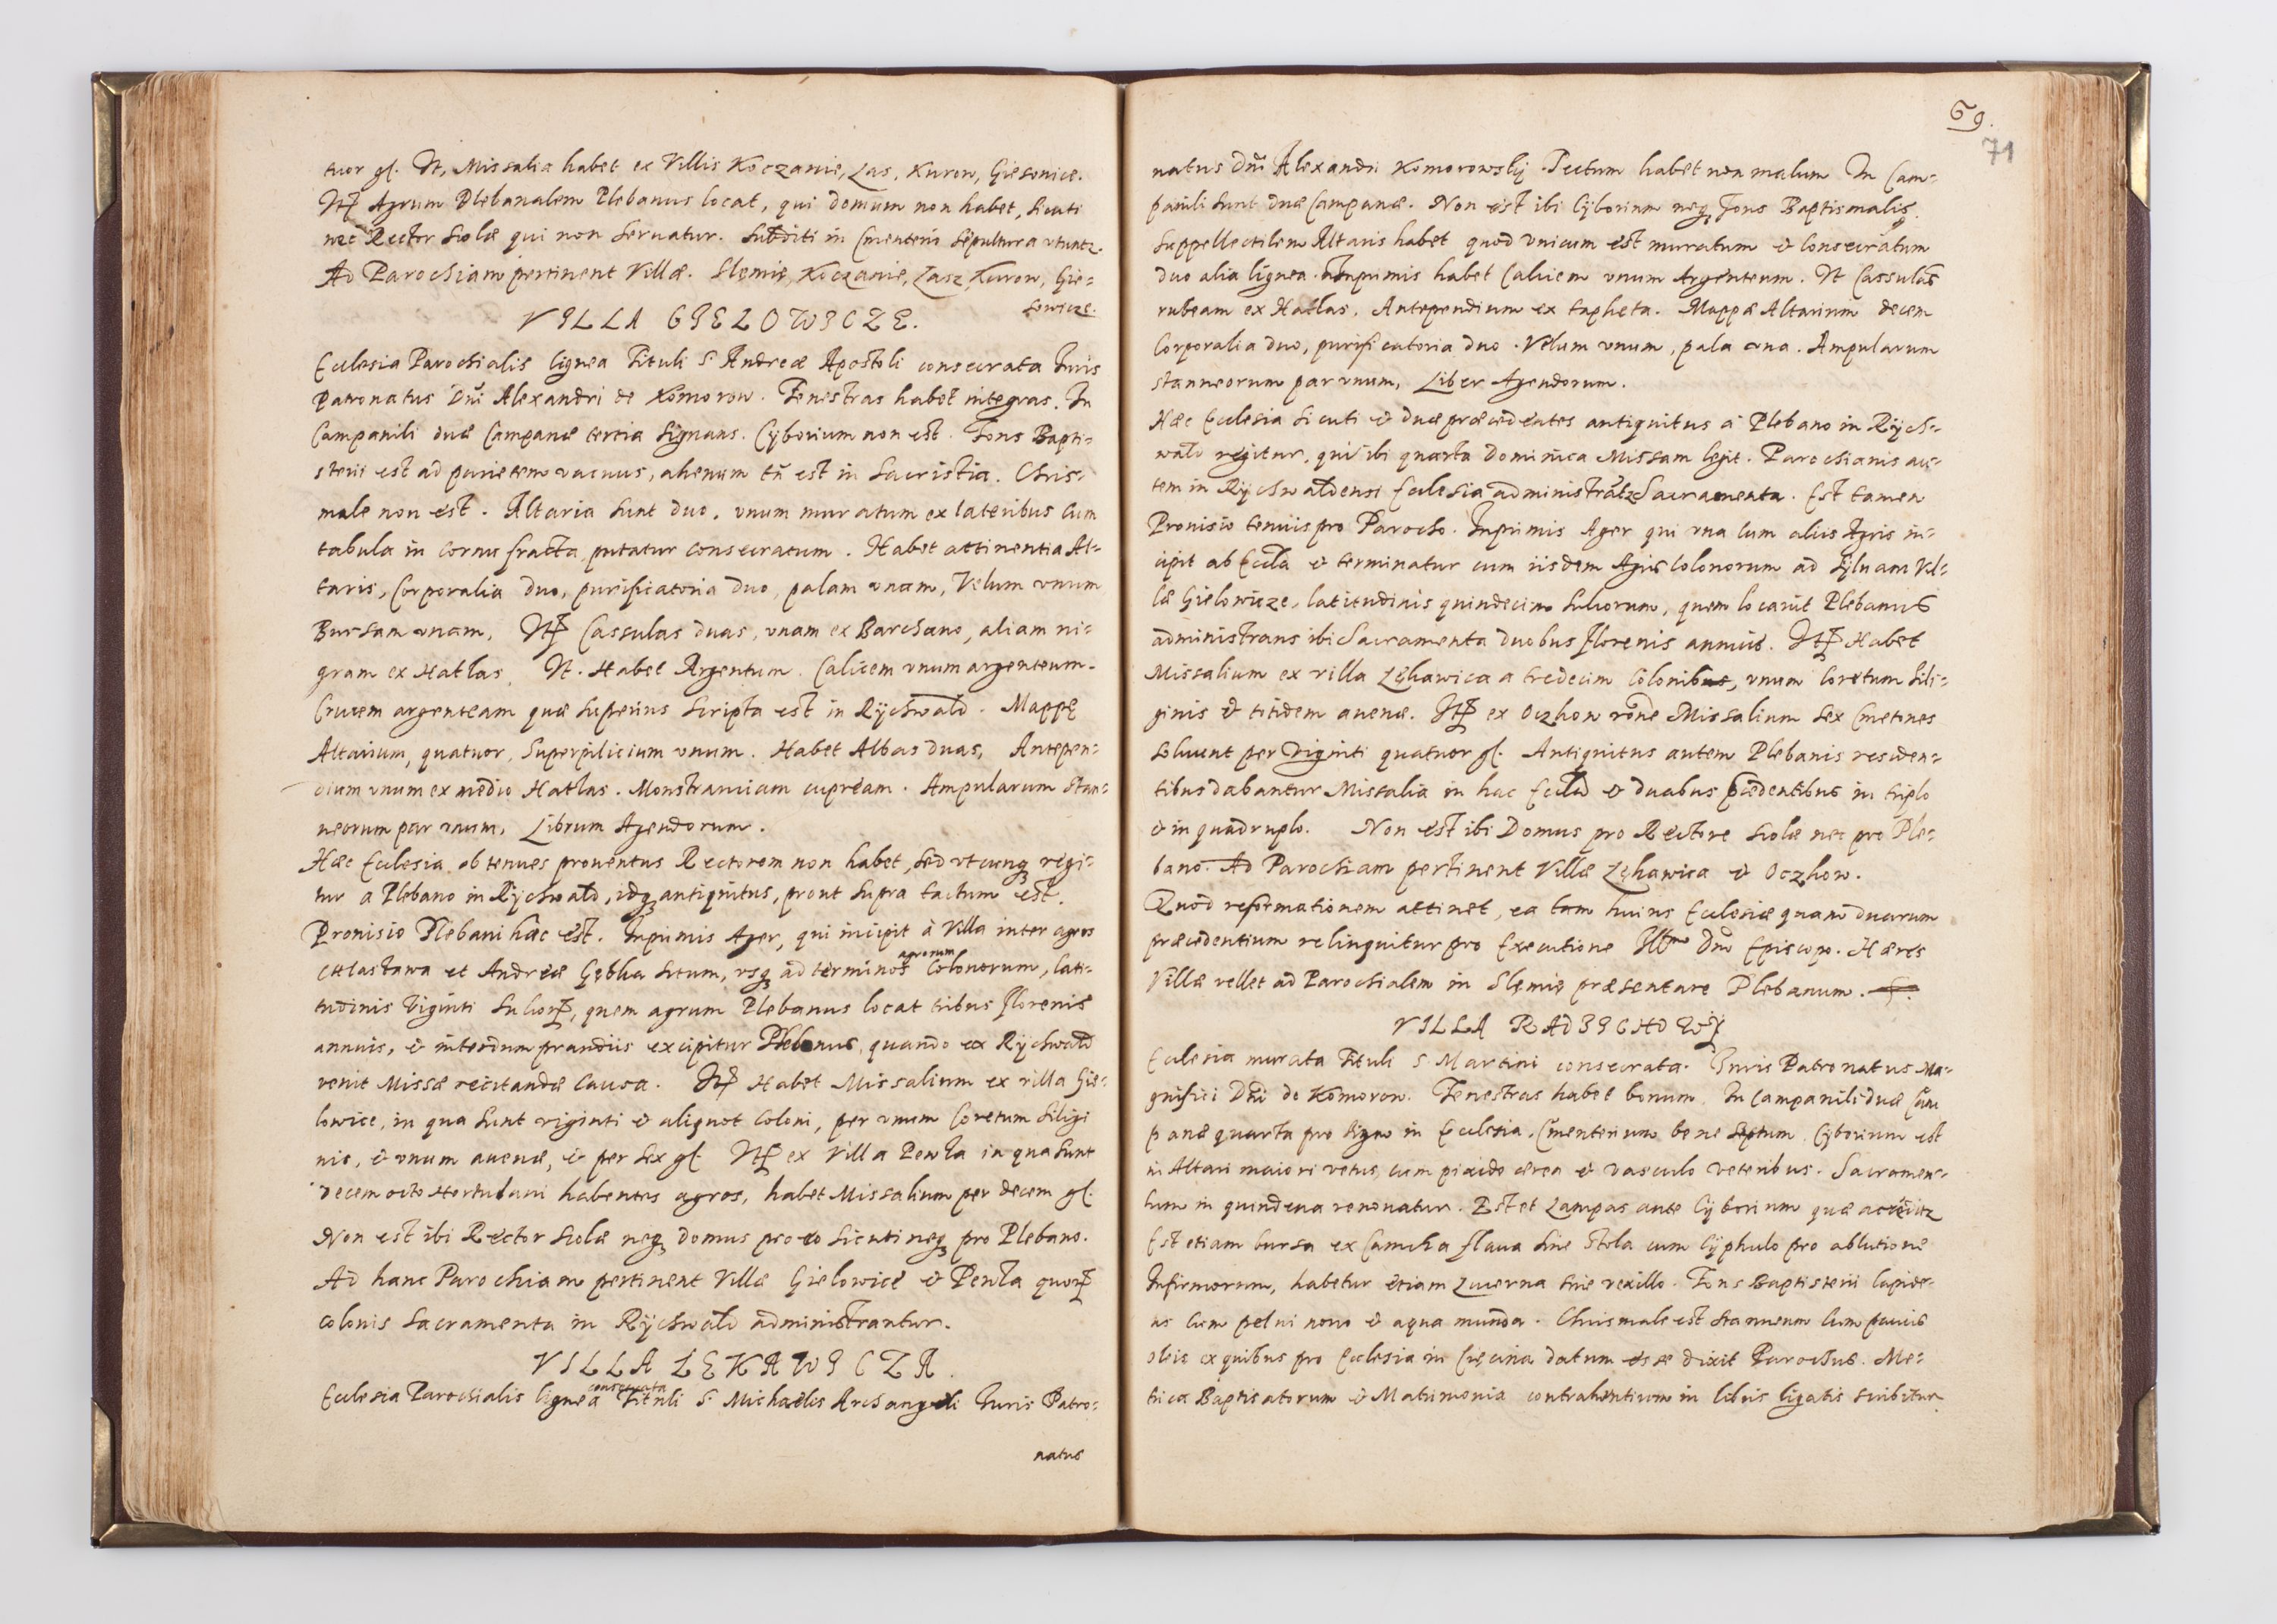 tuor gl. It. Missalia habet ex Villis Koczanie, Las, Kurow, Giesonice.
Itē Agrum Plebanalem Plebanus locat, qui domum non habet, sicuti
nec Rector Scolæ qui non seruatur. Subditi in Cmenterio sepultura vtuntꝛ.
Ad Parochiam pertinent Villæ. Slemie, Koczanie, Lasz, Kurow, Gie-
sowicze.
VILLA GIELOWICZE.
Ecclesia Parochialis lignea Tituli S. Andreæ Apostoli consecrata Iuris
Patronatus Dni Alexandri de Komorow. Fenestras habet integras. In
Campanili duæ Campanæ tertia signans. Cyborium non est. Fons Bapti-
sterii est ad parietem vacuus, ahenum tn̄ est in Sacristia. Chris-
male non est. Altaria sunt duo, vnum muratum ex lateribus cum
tabula in cornu fracta, putatur consecratum. Habet attinentia Al-
taris, Corporalia duo, purificatoria duo, palam vnam, Velum vnum
Bursam vnam, Itē Cassulas duas, vnam ex Barchano, aliam ni-
gram ex Hatlas. It. Habet Argentum. Calicem vnum argenteum.
Crucem argenteam quæ superius scripta est in Rychwald. Mappę
Altarium, quatuor, Superpilicium vnum. Habet Albas duas, Antepen-
dium vnum ex medio Hatlas. Monstranciam cupream. Ampularum stan-
neorum par vnum, Librum Agendorum.
Hæc Ecclesia ob tenues prouentus Rectorem non habet, sed vtcunqꝫ regi-
tur a Plebano in Rychwald, idqꝫ antiquitus, prout supra tactum est.
Prouisio Plebani hæc est. Inprimis Ager, qui incipit à Villa inter agros
Chlastawa et Andreæ Gębka situm, vsqꝫ ad terminos agrorum Colonorum, lati-
tudinis viginti sulcorū, quem agrum Plebanus locat tribus florenis
annuis, & interdum prandiis excipitur Plebanus, quando ex Rychwald
venit Missæ recitandæ causa. Itē Habet Missalium ex villa Gie-
lowice, in qua sunt viginti & aliquot coloni, per vnum Coretum siligi
nis, & vnum auenæ, & per sex gl. Itē ex Villa Pewla in qua sunt
decem octo Hortulani habentes agros, habet Missalium per decem gl.
Non est ibi Rector Scolæ neqꝫ domus pro eo sicuti neqꝫ pro Plebano.
Ad hanc Parochiam pertinent Villæ Gielowice & Pewla quorū
colonis Sacramenta in Rychwald administrantur.
VILLA ŁEKAWICZA.
Ecclesia Parochialis lignea consecrata Tituli S. Michaelis Archangeli Iuris Patro-
natus
69.
71
natus Dni Alexandri Komorowskij. Tectum habet non malum. In Cam-
panili sunt duæ Campanæ. Non est ibi Cyborium neqꝫ Fons Baptismalis.
Suppellectilem Altaris habet quod vnicum est muratum & consecratum
duo alia lignea. Inprimis habet Calicem vnum Argenteum. It Cassulas
rubeam ex Hatlas, Antependium ex tapheta. Mappæ Altarium decem
Corporalia duo, purificatoria duo. Velum vnum, pala vna. Ampularum
stanneorum par vnum, Liber Agendorum.
Hæc Ecclesia sicuti & duæ præcedentes antiquitus à Plebano in Rych-
wald regitur, qui ibi quarta Dominica Missam legit. Parochianis au-
tem in Rychwaldensi Ecclesia administrātꝛ Sacramenta. Est tamen
Prouisio tenuis pro Parocho. Inprimis Ager qui vna cum aliis Agris in-
cipit ab Eccla & terminatur cum iisdem Agris Colonorum ad syluam Vil-
læ Gielowicze, latitudinis quindecim sulcorum, quem locauit Plebanus
administrans ibi Sacramenta duobus florenis annuis. Itē Habet
Missalium ex villa Lękawica a tredecim Colonibus, vnum Coretum sili-
ginis & totidem auenæ. Itē ex Oczkow rōne Missalium sex Cmetones
soluunt per viginti quatuor gl. Antiquitus autem Plebanis residen-
tibus dabantur Missalia in hac Eccla & duabus p̄cedentibus in triplo
& in quadruplo. Non est ibi Domus pro Rectore Scolæ nec pro Ple-
bano. Ad Parochiam pertinent Villæ Lękawica & Oczkow.
Quod reformationem attinet, ea tam huius Ecclesiæ quam duarum
præcedentium relinquitur pro Executione Illmo Dno Episcopo. Hæres
Villæ vellet ad Parochialem in Slemie præsentare Plebanum.
VILLA RADZICHOWY
Ecclesia murata Tituli S Martini consecrata. Iuris Patronatus Ma-
gnifici Dni de Komorow. Fenestras habet bonum. In Campanili duæ Cam
panæ quarta pro signo in Ecclesia. Cmenterium bene septum. Cyborium est
in Altari maiori vetus, cum pixide ærea & vasculo veteribus. Sacramen-
tum in quindena renouatur. Est et Lampas ante Cyborium quæ accēditꝛ
Est etiam bursa ex Camcha flaua sine stola cum Cyphulo pro ablutione
Infirmorum, habetur etiam Lucerna sine vexillo. Fons Baptisterii lapide-
us cum pelui nouo & aqua munda. Chrismale est stanneum cum paucis
oleis ex quibus pro Ecclesia in Ciecina datum esse dixit Parochus. Me-
trica Baptisatorum & Matrimonia contrahentium in libris ligatis scribitur